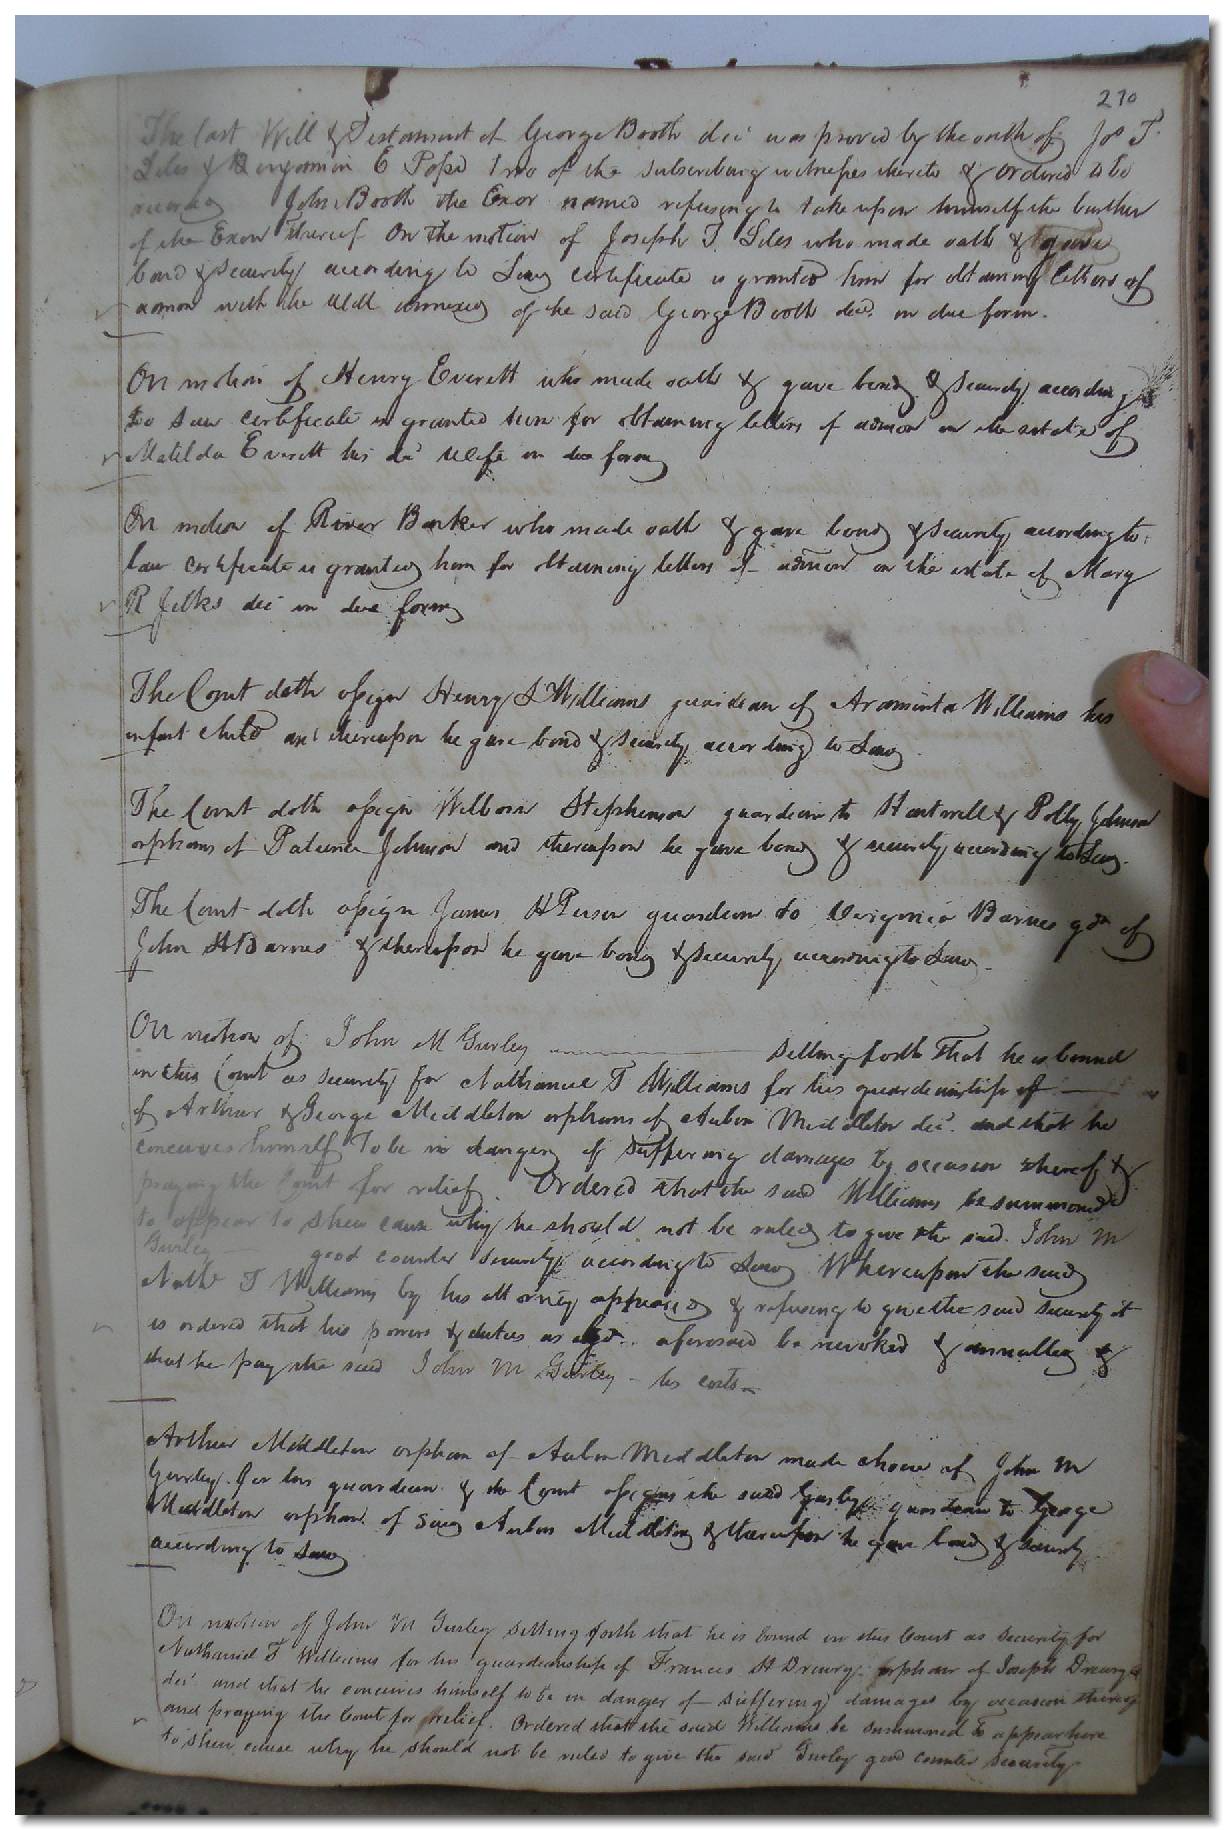 270
The last Will & Testament of George Booth dec was proved by the oath of Jos T.
Liles & Benjamin E Pope two of the subscribing witnesses thereto & ordered to be
recorded John Booth the Exor named refusing to take upon himself the burthen
of the Exon thereof On the motion of Joseph T. Liles who made oath & gave
bond & security according to Law certificate is granted him for obtaining letters of
admon with the Will annexed of the said George Booth decd. in due form.
On motion of Henry Everett who made oath & gave bond & security according
to Law certificate is granted him for obtaining letters of admon on the estate of
Matilda Everett his dec wife in due form
On motion of River Barker who made oath & gave bond & security according to
law certificate is granted him for obtaining letters of admon on the estate of Mary
R Jelks dec in due form
The Court doth assign Henry S Williams guardian of Araminta Williams his
infant child and thereupon he gave bond & security according to Law
The Court doth assign Wilborn Stephenson guardian to Hartwell & Polly Johnson
orphans of Patience Johnson and thereupon he gave bond & security according to Law.
The Court doth assign James H Person guardian to Virginia Barnes gdn of
John H Barnes & thereupon he gave bond & security according to Law.
On motion of John M Gurley setting forth that he is bound
in this Court as security for Nathaniel T Williams for his guardianship of
of Arthur & George Middleton orphans of Aulon Middleton dec. and that he
conceives himself to be in danger of suffering damages by occasion thereof &
praying the Court for relief. Ordered that the said Williams be summoned
to appear to shew cause why he should not be ruled to give the said John M
Gurley good counter security according to Law Whereupon the said
Nathl T Williams by his attorney appeared & refusing to give the said security it
is ordered that his powers & duties as gdn. aforesaid be revoked & annulled &
that he pay the said John M Gurley his costs
Arthur Middleton orphan of Aulon Middleton made choice of John M
Gurley for his guardian & the Court assigns the said Gurley guardian to George
Middleton orphan of said Aulon Middleton & thereupon he gave bond & security
according to Law
On motion of John M Gurley setting forth that he is bound in this Court as security for
Nathaniel T Williams for his guardianship of Frances H Drewry orphan of Joseph Drewry
dec. and that he conceives himself to be in danger of suffering damages by occasion thereof
and praying the Court for relief. Ordered that the said Williams be summoned to appear here
to shew cause why he should not be ruled to give the said Gurley good counter security